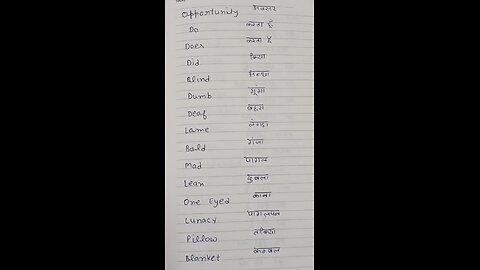 Opportunity अवसर
Do करता हूँ
Does करता है
Did किया
Blind अन्धा
Dumb गूंगा
Deaf बहरा
Lame लंगड़ा
Bald गंजा
Mad पागल
Lean दुबला
One Eyed काना
Lunacy पागलपन
Pillow तकिया
Blanket कम्बल